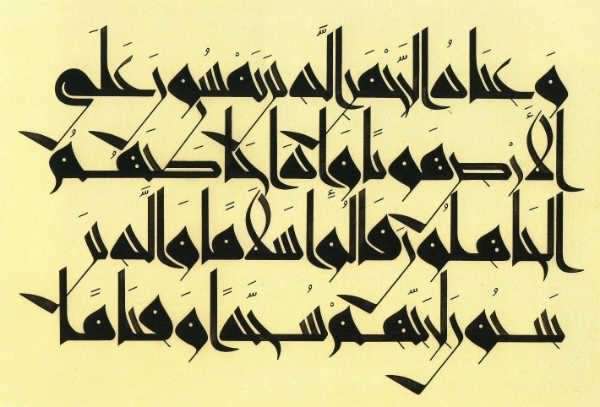 وَعِبَادُ الرَّحْمَنِ الَّذِينَ يَمْشُونَ عَلَى
الْأَرْضِ هَوْنًا وَإِذَا خَاطَبَهُمُ
الْجَاهِلُونَ قَالُوا سَلَامًا وَالَّذِينَ يَـ
ـبِيتُونَ لِرَبِّهِمْ سُجَّدًا وَقِيَامًا